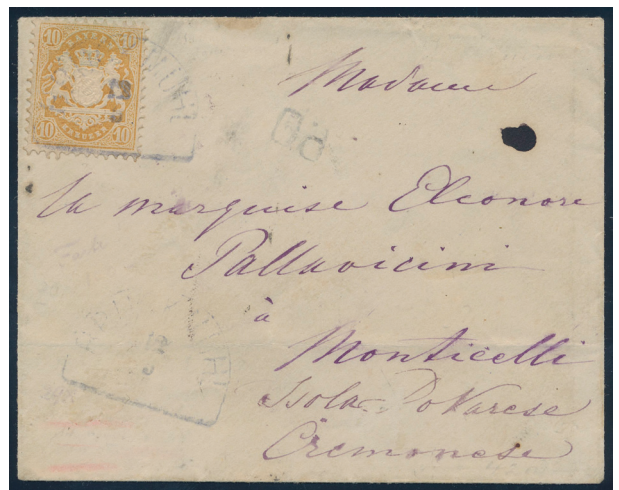 10 BAYERN 10
10 KREUZER 10
12
PD
Madame
la marquise Eleonore
Pallavicini
à
Monticelli
Isola Dovarese
Cremonese